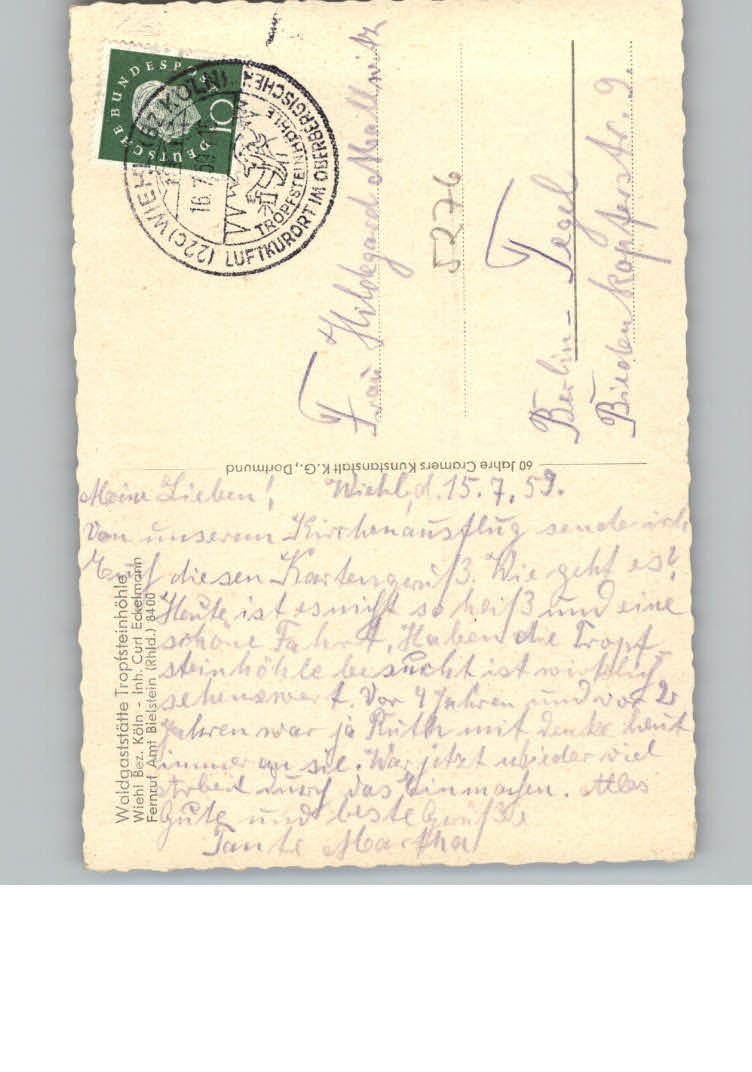 Meine Lieben! Wiehl, d. 15.7.59.
Von unserem Kirchenausflug sende ich
Euch diesen Kartengruß. Wie geht es?
Heute ist es nicht so heiß und eine
schöne Fahrt. Haben die Tropf-
steinhöhle besucht ist wirklich
sehenswert. Vor 4 Jahren und vor 2
Jahren war ja Ruth mit denke heut
immer an sie. War jetzt wieder viel
Arbeit durch das Einmachen. Alles
Gute und beste Grüße
Tante Martha
Waldgaststätte Tropfsteinhöhle
Wiehl Bez. Köln - Inh. Curt Eckelmann
Fernruf Amt Bielstein (Rhld.) 8400
60 Jahre Cramers Kunstanstalt K.G., Dortmund
DEUTSCHE BUNDESPOST
10
(22c) WIEHL (Bz. KÖLN)
16.7.59
TROPFSTEINHÖHLE
LUFTKURORT IM OBERBERGISCHEN
Frau Hildegard
5276
Berlin-Tegel
Biedenkopferstr. 9